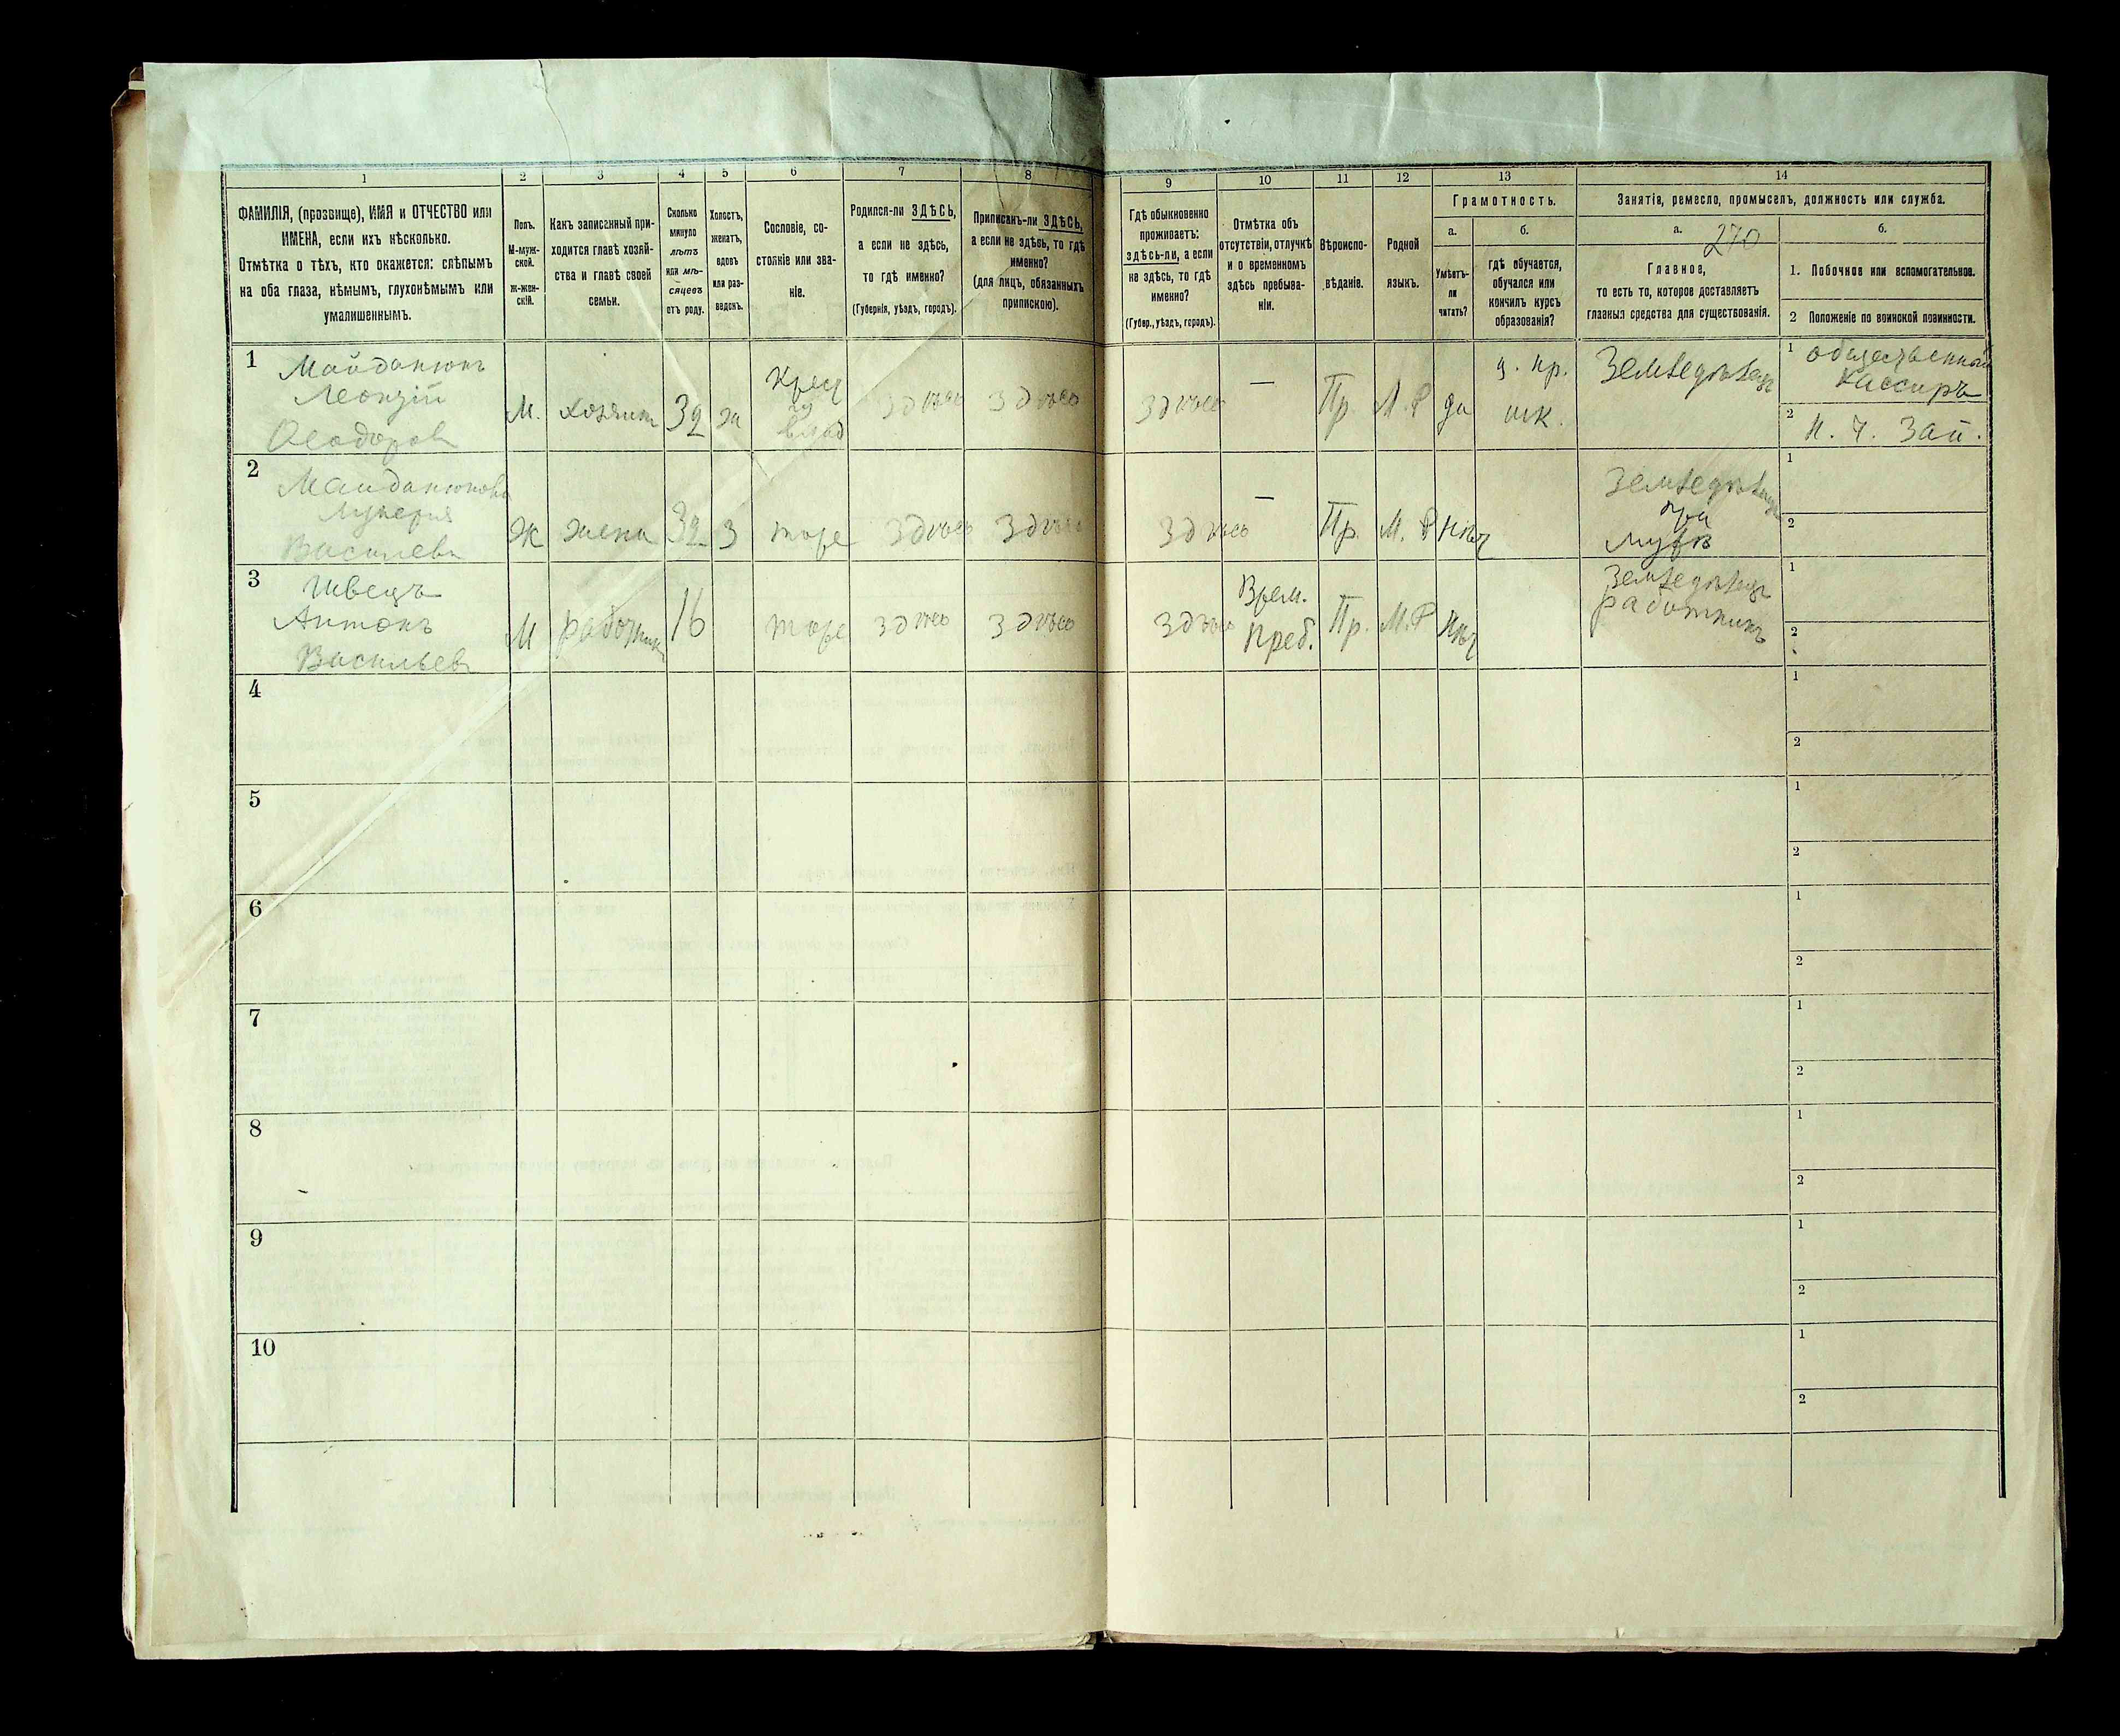 1
2
3
4
5
6
7
8
ФАМИЛІЯ, (прозвище), ИМЯ и ОТЧЕСТВО или
ИМЕНА, если ихъ нѣсколько.
Отмѣтка о тѣхъ, кто окажется: слѣпымъ
на оба глаза, нѣмымъ, глухонѣмымъ или
умалишеннымъ.
Полъ.
М-муж-
ской.
ж-жен-
скій.
Какъ записанный при-
ходится главѣ хозяй-
ства и главѣ своей
семьи.
Сколько
минуло
лѣтъ
или мѣ-
сяцевъ
отъ роду.
Холостъ,
женатъ,
вдовъ
или раз-
веденъ.
Сословіе, со-
стояніе или зва-
ніе.
Родился-ли ЗДѢСЬ,
а если не здѣсь,
то гдѣ именно?
(Губернія, уѣздъ, городъ).
Приписанъ-ли ЗДѢСЬ,
а если не здѣсь, то гдѣ
именно?
(для лицъ, обязанныхъ
припискою).
9
10
11
12
13
14
Гдѣ обыкновенно
проживаетъ:
здѣсь-ли, а если
не здѣсь, то гдѣ
именно?
(Губер., уѣздъ, городъ).
Отмѣтка объ
отсутствіи, отлучкѣ
и о временномъ
здѣсь пребыва-
ніи.
Вѣроиспо-
вѣданіе.
Родной
языкъ.
Грамотность.
а.
Умѣетъ-
ли
читать?
б.
гдѣ обучается,
обучался или
кончилъ курсъ
образованія?
Занятія, ремесло, промыселъ, должность или служба.
а.
270
Главное,
то есть то, которое доставляетъ
главныя средства для существованія.
б.
1. Побочное или вспомогательное.
2 Положеніе по воинской повинности.
1
Майданюкъ
Леонтій
Ѳеодоровъ
М.
хозяинъ
32
жа
Крест
влад
здѣсь
здѣсь
здѣсь
—
Пр.
М.Р
да
ц. пр.
шк.
Земледѣлецъ
1 общественный
кассиръ
2 Н. Ч. Зап.
2
Майданюкова
Лукерія
Васильева
Ж
жена
32
З
тоже
здѣсь
здѣсь
здѣсь
—
Пр.
М. Р
нѣт
Земледѣлецъ
при
мужѣ
1
2
3
Швецъ
Антонъ
Васильевъ
М
работникъ
16
тоже
здѣсь
здѣсь
здѣсь
Врем.
Преб.
Пр.
М.Р
нѣт
Земледѣлецъ
работникъ
1
2
4
1
2
5
1
2
6
1
2
7
1
2
8
1
2
9
1
2
10
1
2